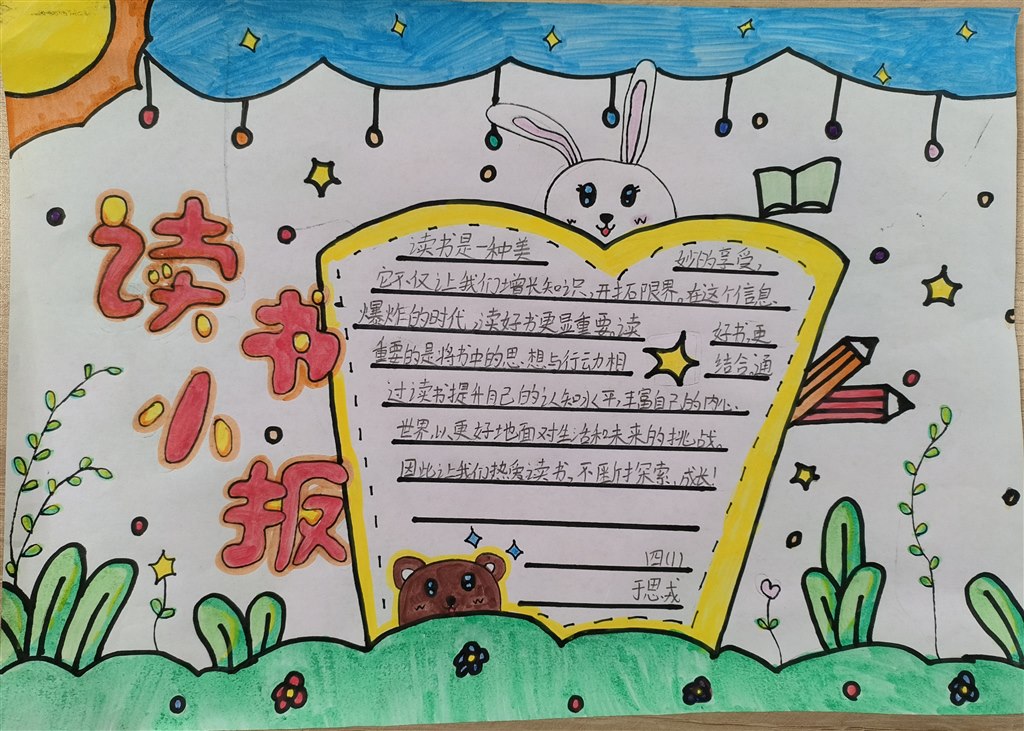 读书小报
读书是一种美 妙的享受,
它不仅让我们增长知识,开拓眼界。在这个信息
爆炸的时代,读好书更显重要。读 好书,更
重要的是将书中的思想与行动相 结合,通
过读书提升自己的认知水平,丰富自己的内心
世界,以更好地面对生活和未来的挑战。
因此让我们热爱读书,不断探索,成长!
四(1)
于思戎